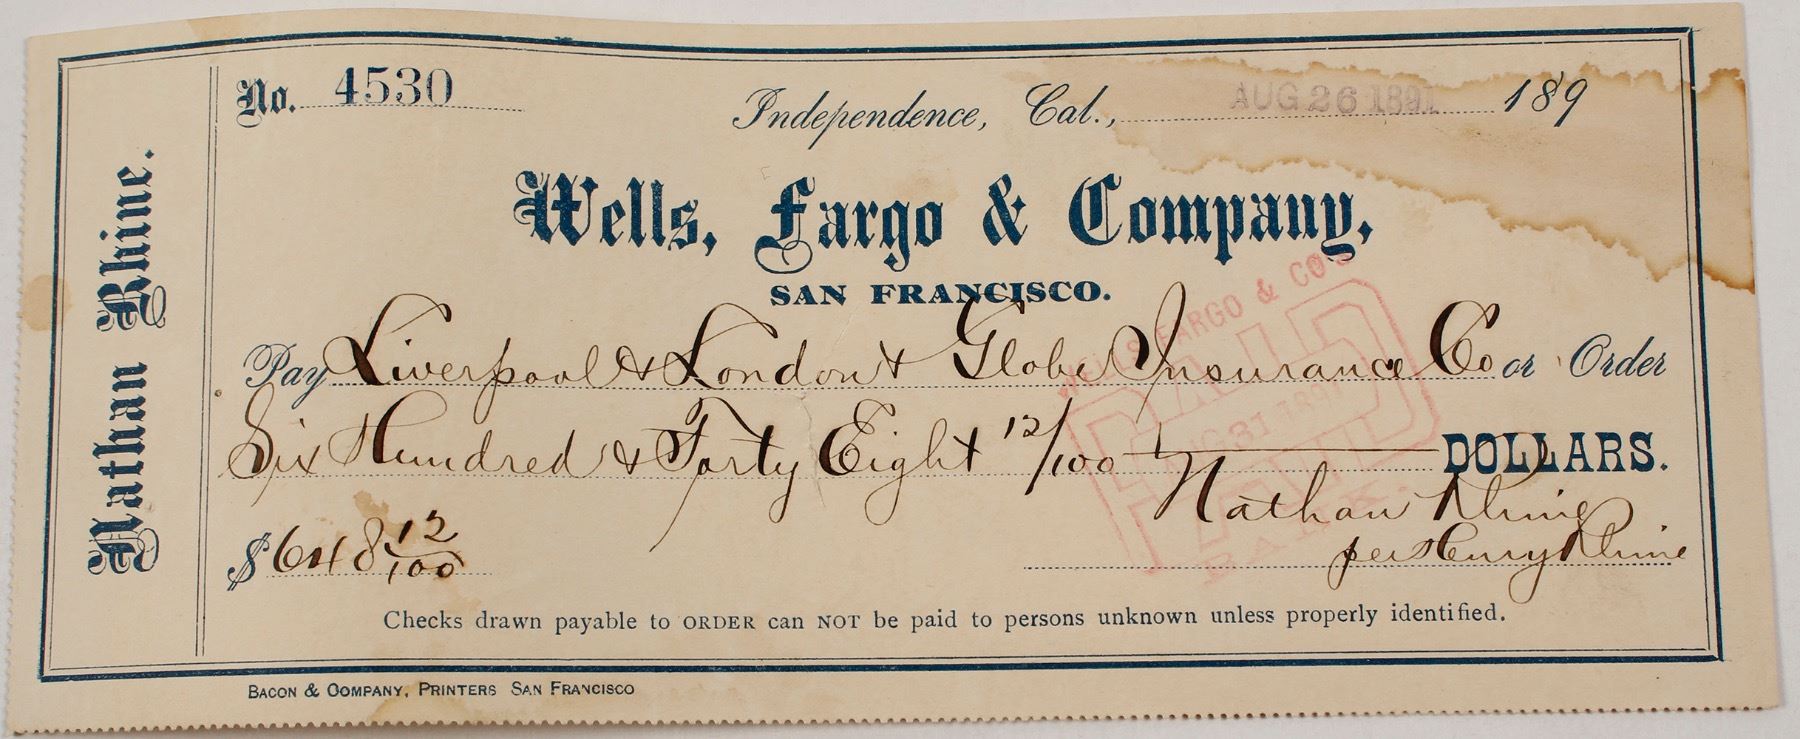 Nathan Rhine.
No. 4530
Independence, Cal., AUG 26 1891 189
Wells, Fargo & Company,
SAN FRANCISCO.
Pay Liverpool & London & Globe Insurance Co or Order
Six Hundred & Forty Eight 12/100 DOLLARS.
WELLS FARGO & CO'S
PAID
AUG 31 1891
BANK.
Nathan Rhine
per Henry Rhine
$648 12/100
Checks drawn payable to ORDER can NOT be paid to persons unknown unless properly identified.
BACON & COMPANY, PRINTERS SAN FRANCISCO